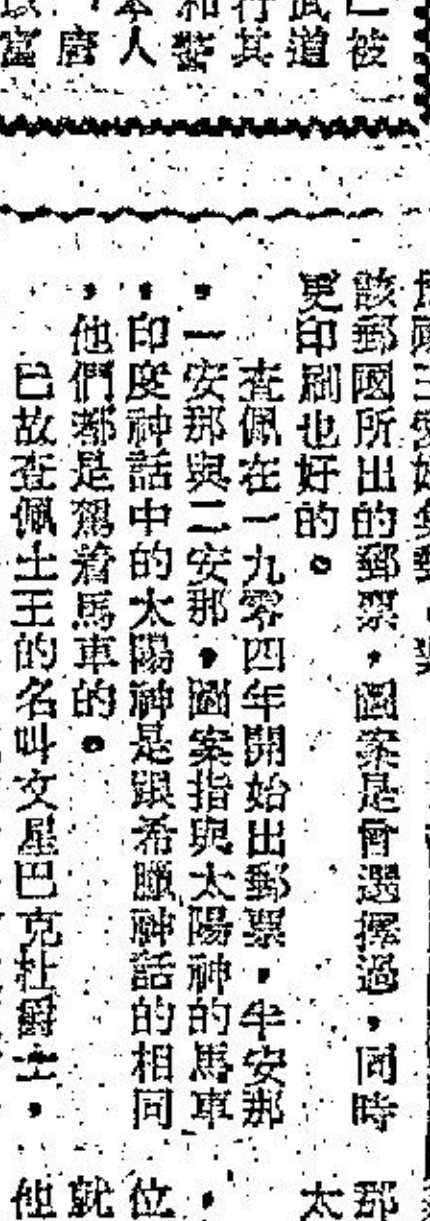 已被
武道
行其
和鑒
本人
，唐
富
該郵國所出的郵票，圖案是曾選擇過，同時
更印刷也好的。
查佩在一九零四年開始出郵票，半安那
，一安那與二安那，圖案指與太陽神的馬車
，印度神話中的太陽神是跟希臘神話的相同
，他們都是駕着馬車的。
已故查佩土王的名叫文星巴克杜爵士，
那
太
，
位
就
他